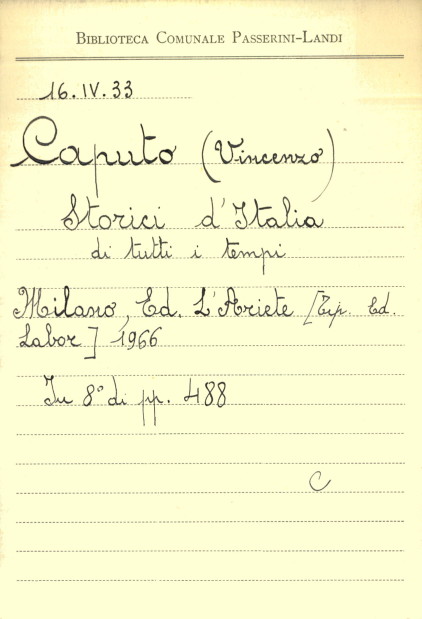 BIBLIOTECA COMUNALE PASSERINI-LANDI
16.IV.33
Caputo (Vincenzo)
Storici d'Italia
di tutti i tempi
Milano, Ed. L'Ariete [Tip. Ed.
Labor] 1966
In 8° di pp. 488
C